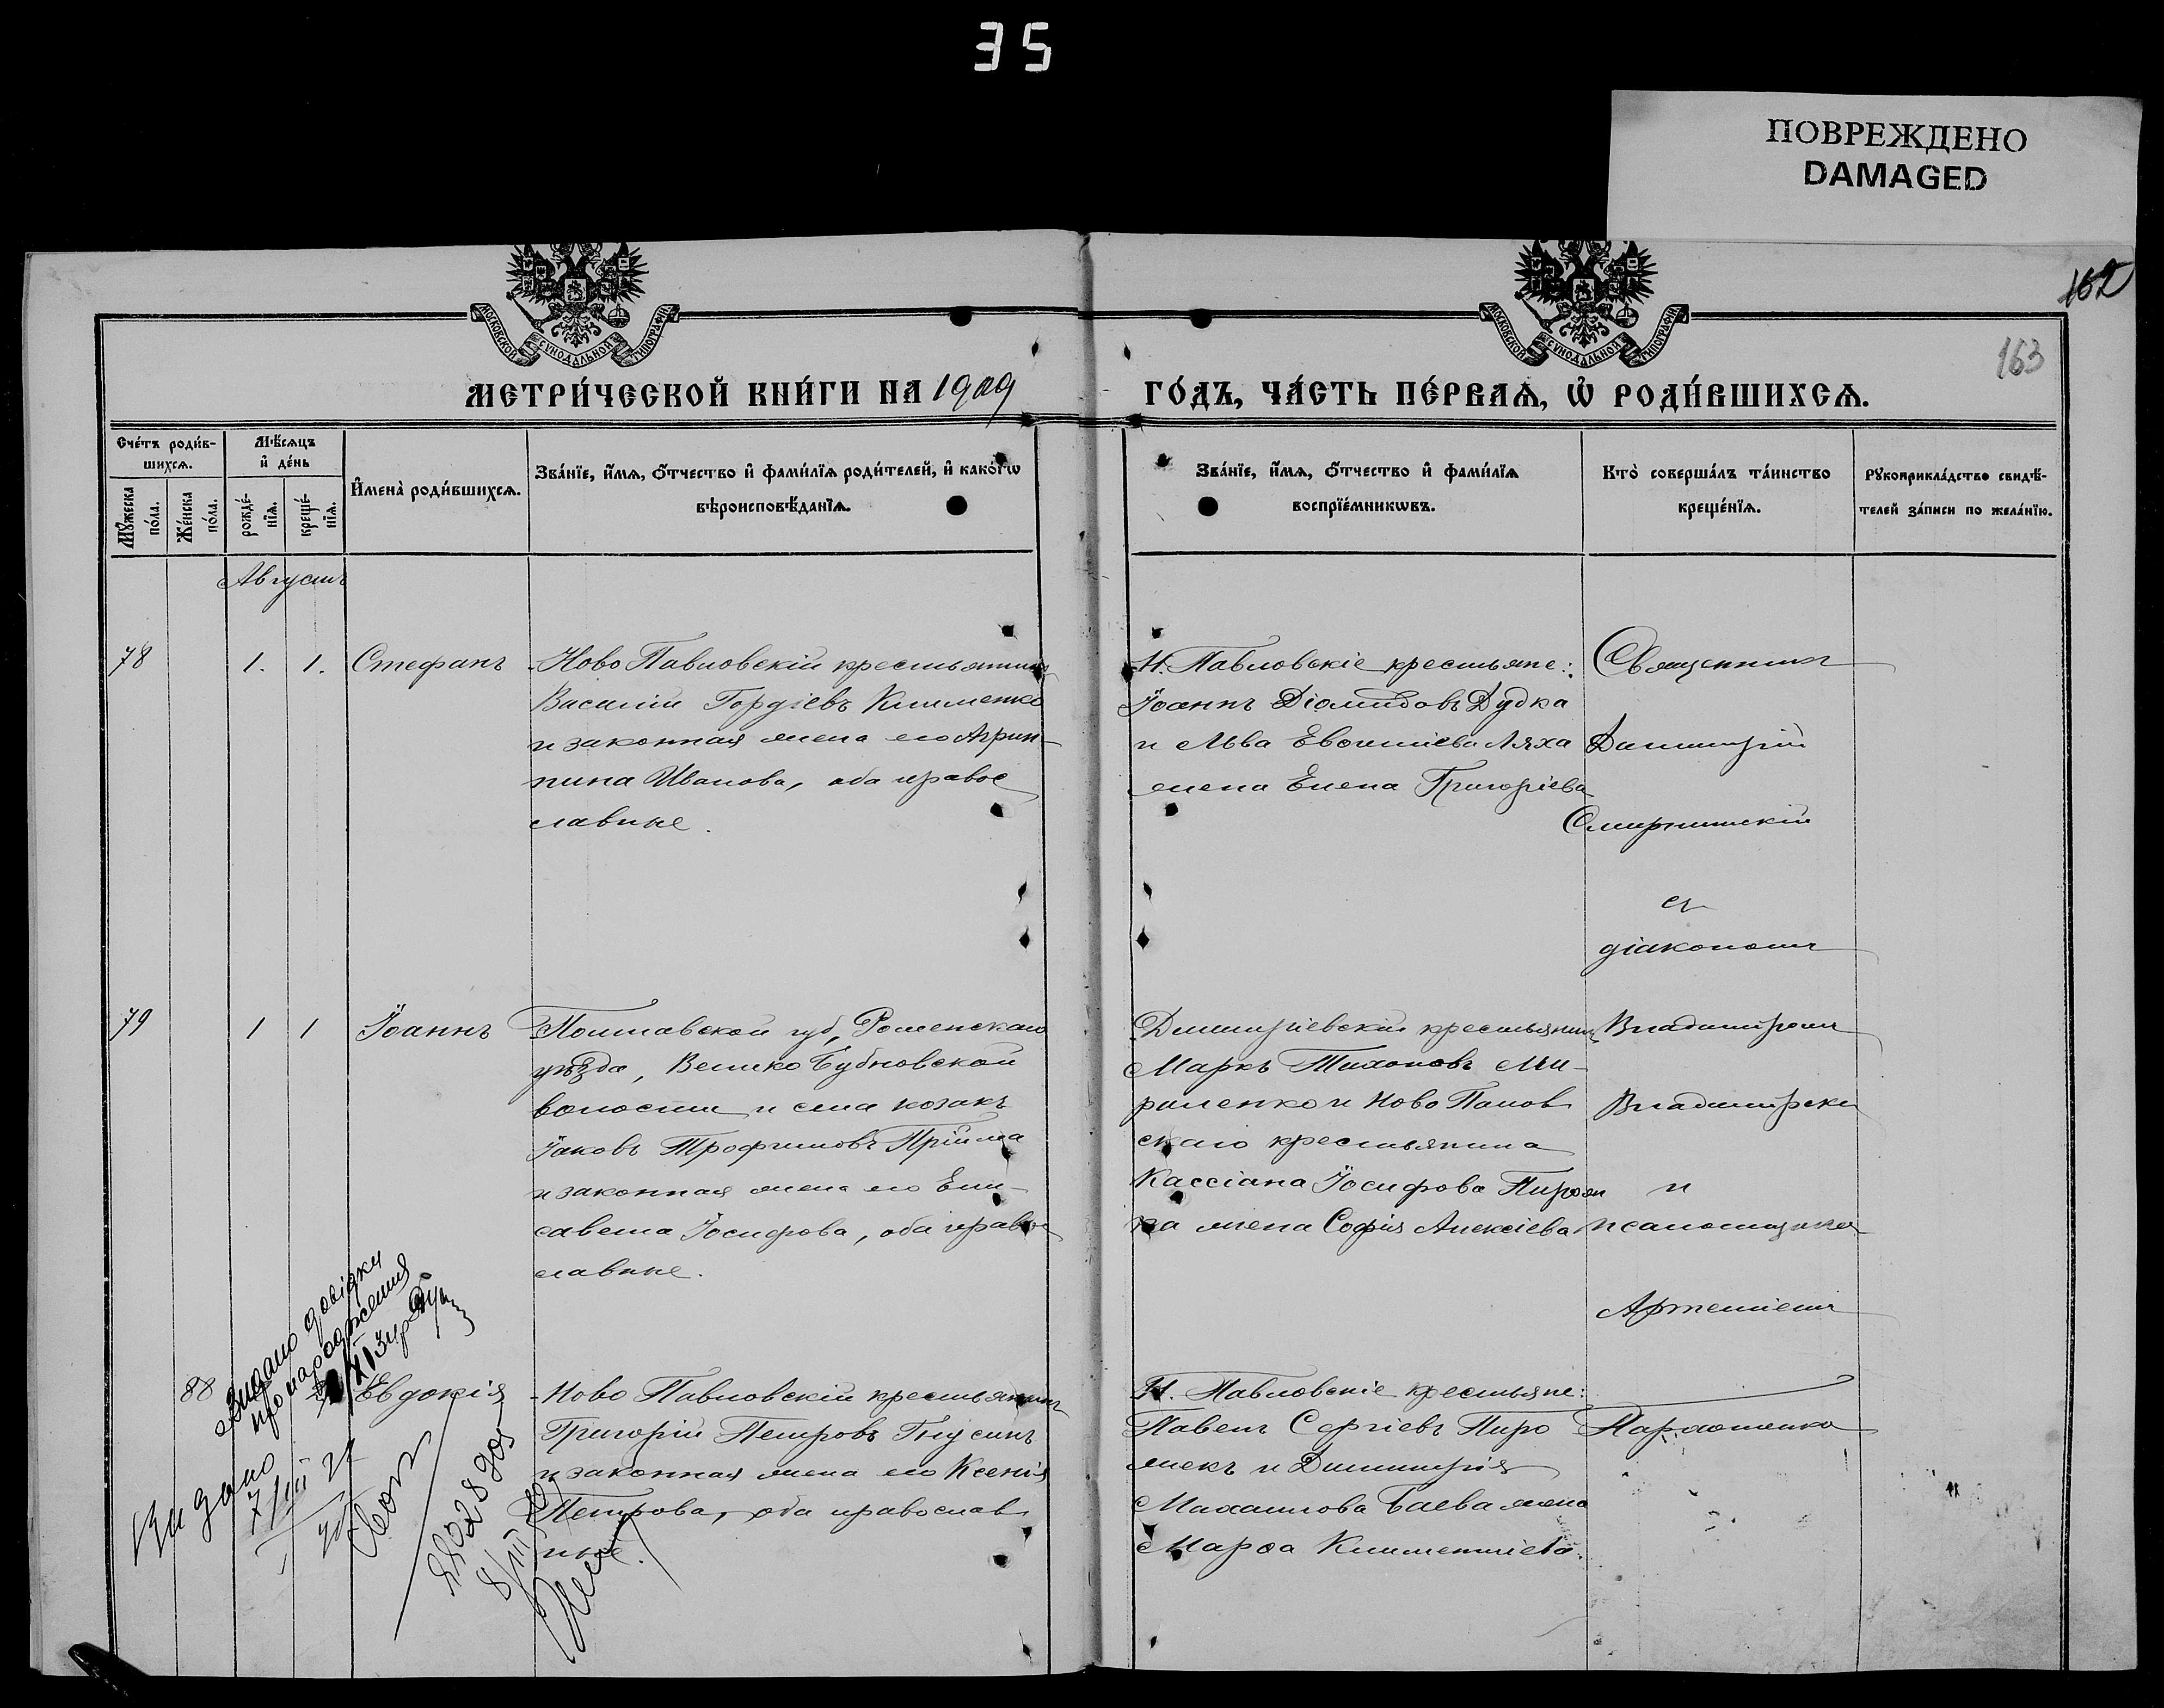 35
ПОВРЕЖДЕНО
DAMAGED
162
163
МОСКОВСКОЙ СѴНОДАЛЬНОЙ ТИПОГРАФІИ
МОСКОВСКОЙ СѴНОДАЛЬНОЙ ТИПОГРАФІИ
МЕТРИ́ЧЕСКОЙ КНИ́ГИ НА 1909
ГО́ДЪ, ЧА́СТЬ ПЕ́РВАѦ, Ѡ҆ РОДИ́ВШИХСѦ.
Сче́тъ роди́в-
шихсѧ.
Мꙋ́жеска
по́ла.
Же́нска
по́ла.
Мѣ́сѧцъ
и҆ де́нь
рожде́-
нїѧ.
креще́-
нїѧ.
И҆мена̀ роди́вшихсѧ.
Зва́нїе, и҆́мѧ, ѻ҆́тчество и҆ фами́лїѧ роди́телей, и҆ како́гѡ
вѣроисповѣ́данїѧ.
Зва́нїе, и҆́мѧ, ѻ҆́тчество и҆ фами́лїѧ
воспрїе́мникѡвъ.
Кто̀ соверша́лъ та́инство
креще́нїѧ.
Рꙋкоприкла́дство свидѣ́-
телей за́писи по жела́нїю.
Августъ
78
1.
1.
Стефанъ
Ново Павловскій крестьянинъ
Василій Гордіевъ Клименко
и законная жена его Агрип-
пина Иванова, оба правос
лавные.
Н. Павловскіе крестьяне:
Іоаннъ Діомидовъ Дудка
и Льва Евфиміева Ляха
жена Елена Григоріева
Священникъ
Димитрій
Смирнитскій
съ
діакономъ
79
1
1
Іоаннъ
Полтавской губ, Роменскаго
уѣзда, Велико Бубновской
волости и села козакъ
Іаковъ Трофимовъ Прійма
и законная жена его Ели-
савета Іосифова, оба право
славные.
Димитріевскій крестьянинъ
Маркъ Тихоновъ Ми-
риленко и Ново Павлов
скаго крестьянина
Кассіана Іосифова Пирож
ка жена Софія Алексіева
Владиміромъ
Владимірски
и
псаломщико
Артеміемъ
88
Евдокія
Ново Павловскій крестьянинъ
Григорій Петровъ Гнусинъ
и законная жена его Ксенія
Петрова, оба православ
ные.
Н. Павловскіе крестьяне:
Павелъ Сергіевъ Пиро
жекъ и Димитрія
Михаилова Баева жена
Марѳа Климентіева.
Пархоменко
Видано довідку
про народження
Видано